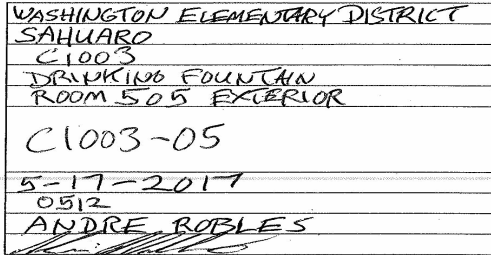 WASHINGTON ELEMENTARY DISTRICT
SAHUARO
C1003
DRINKING FOUNTAIN
ROOM 505 EXTERIOR
C1003-05
5-17-2017
0512
ANDRE ROBLES